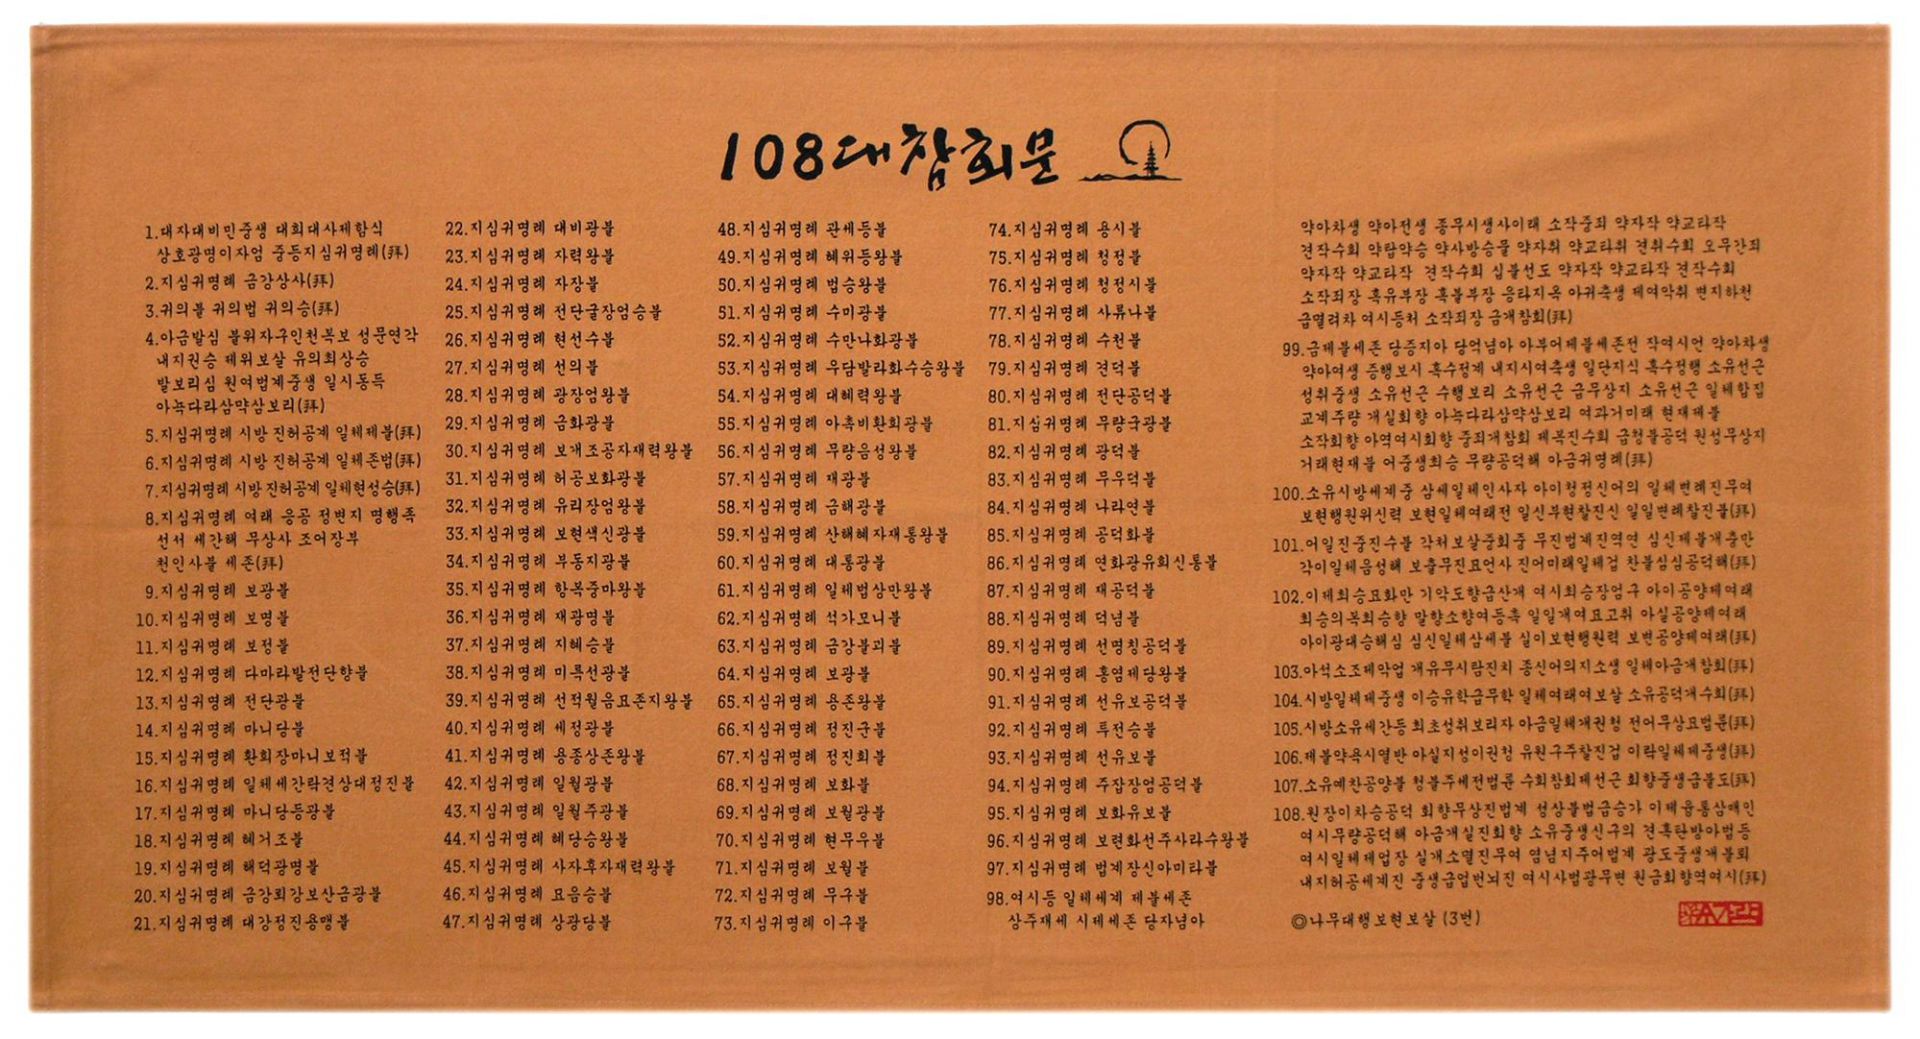 108대참회문
1.대자대비민중생 대희대사제함식
상호광명이자엄 중등지심귀명례(拜)
2.지심귀명례 금강상사(拜)
3.귀의불 귀의법 귀의승(拜)
4.아금발심 불위자구인천복보 성문연각
내지권승 제위보살 유의최상승
발보리심 원여법계중생 일시동득
아뇩다라삼먁삼보리(拜)
5.지심귀명례 시방 진허공계 일체제불(拜)
6.지심귀명례 시방 진허공계 일체존법(拜)
7.지심귀명례 시방 진허공계 일체현성승(拜)
8.지심귀명례 여래 응공 정변지 명행족
선서 세간해 무상사 조어장부
천인사불 세존(拜)
9.지심귀명례 보광불
10.지심귀명례 보명불
11.지심귀명례 보정불
12.지심귀명례 다마라발전단향불
13.지심귀명례 전단광불
14.지심귀명례 마니당불
15.지심귀명례 환희장마니보적불
16.지심귀명례 일체세간락견상대정진불
17.지심귀명례 마니당등광불
18.지심귀명례 혜거조불
19.지심귀명례 해덕광명불
20.지심귀명례 금강뢰강보산금광불
21.지심귀명례 대강정진용맹불
22.지심귀명례 대비광불
23.지심귀명례 자력왕불
24.지심귀명례 자장불
25.지심귀명례 전단굴장엄승불
26.지심귀명례 현선수불
27.지심귀명례 선의불
28.지심귀명례 광장엄왕불
29.지심귀명례 금화광불
30.지심귀명례 보개조공자재력왕불
31.지심귀명례 허공보화광불
32.지심귀명례 유리장엄왕불
33.지심귀명례 보현색신광불
34.지심귀명례 부동지광불
35.지심귀명례 항복중마왕불
36.지심귀명례 재광명불
37.지심귀명례 지혜승불
38.지심귀명례 미륵선광불
39.지심귀명례 선적월음묘존지왕불
40.지심귀명례 세정광불
41.지심귀명례 용종상존왕불
42.지심귀명례 일월광불
43.지심귀명례 일월주광불
44.지심귀명례 혜당승왕불
45.지심귀명례 사자후자재력왕불
46.지심귀명례 묘음승불
47.지심귀명례 상광당불
48.지심귀명례 관세등불
49.지심귀명례 혜위등왕불
50.지심귀명례 법승왕불
51.지심귀명례 수미광불
52.지심귀명례 수만나화광불
53.지심귀명례 우담발라화수승왕불
54.지심귀명례 대혜력왕불
55.지심귀명례 아촉비환희광불
56.지심귀명례 무량음성왕불
57.지심귀명례 재광불
58.지심귀명례 금해광불
59.지심귀명례 산해혜자재통왕불
60.지심귀명례 대통광불
61.지심귀명례 일체법상만왕불
62.지심귀명례 석가모니불
63.지심귀명례 금강불괴불
64.지심귀명례 보광불
65.지심귀명례 용존왕불
66.지심귀명례 정진군불
67.지심귀명례 정진희불
68.지심귀명례 보화불
69.지심귀명례 보월광불
70.지심귀명례 현무우불
71.지심귀명례 보월불
72.지심귀명례 무구불
73.지심귀명례 이구불
74.지심귀명례 용시불
75.지심귀명례 청정불
76.지심귀명례 청정시불
77.지심귀명례 사류나불
78.지심귀명례 수천불
79.지심귀명례 견덕불
80.지심귀명례 전단공덕불
81.지심귀명례 무량국광불
82.지심귀명례 광덕불
83.지심귀명례 무우덕불
84.지심귀명례 나라연불
85.지심귀명례 공덕화불
86.지심귀명례 연화광유희신통불
87.지심귀명례 재공덕불
88.지심귀명례 덕념불
89.지심귀명례 선명칭공덕불
90.지심귀명례 홍염제당왕불
91.지심귀명례 선유보공덕불
92.지심귀명례 투전승불
93.지심귀명례 선유보불
94.지심귀명례 주잡장엄공덕불
95.지심귀명례 보화유보불
96.지심귀명례 보련화선주사라수왕불
97.지심귀명례 법계장신아미타불
98.여시등 일체세계 제불세존
상주재세 시제세존 당자념아
약아차생 약아전생 종무시생사이래 소작중죄 약자작 약교타작
견작수희 약탑약승 약사방승물 약자취 약교타취 견취수희 오무간죄
약자작 약교타작 견작수희 십불선도 약자작 약교타작 견작수희
소작죄장 혹유부장 혹불부장 응타지옥 아귀축생 제여악취 변지하천
급멸려차 여시등처 소작죄장 금개참회(拜)
99.금제불세존 당증지아 당억념아 아부어제불세존전 작여시언 약아차생
약아여생 증행보시 혹수정계 내지시여축생 일단지식 혹수정행 소유선근
성취중생 소유선근 수행보리 소유선근 급무상지 소유선근 일체합집
교계주량 개실회향 아뇩다라삼먁삼보리 여과거미래 현재제불
소작회향 아역여시회향 중죄개참회 제복진수희 급청불공덕 원성무상지
거래현재불 어중생최승 무량공덕해 아금귀명례(拜)
100.소유시방세계중 삼세일체인사자 아이청정신어의 일체변례진무여
보현행원위신력 보현일체여래전 일신부현찰진신 일일변례찰진불(拜)
101.어일진중진수불 각처보살중회중 무진법계진역연 심신제불개충만
각이일체음성해 보출무진묘언사 진어미래일체겁 찬불심심공덕해(拜)
102.이제최승묘화만 기악도향급산개 여시최승장엄구 아이공양제여래
최승의복최승향 말향소향여등촉 일일개여묘고취 아실공양제여래
아이광대승해심 심신일체삼세불 실이보현행원력 보변공양제여래(拜)
103.아석소조제악업 개유무시탐진치 종신어의지소생 일체아금개참회(拜)
104.시방일체제중생 이승유학급무학 일체여래여보살 소유공덕개수희(拜)
105.시방소유세간등 최초성취보리자 아금일체개권청 전어무상묘법륜(拜)
106.제불약욕시열반 아실지성이권청 유원구주찰진겁 이락일체제중생(拜)
107.소유예찬공양불 청불주세전법륜 수희참회제선근 회향중생급불도(拜)
108.원장이차승공덕 회향무상진법계 성상불법급승가 이제융통삼매인
여시무량공덕해 아금개실진회향 소유중생신구의 견혹탄방아법등
여시일체제업장 실개소멸진무여 염념지주어법계 광도중생개불퇴
내지허공세계진 중생급업번뇌진 여시사법광무변 원금회향역여시(拜)
◎나무대행보현보살 (3번)